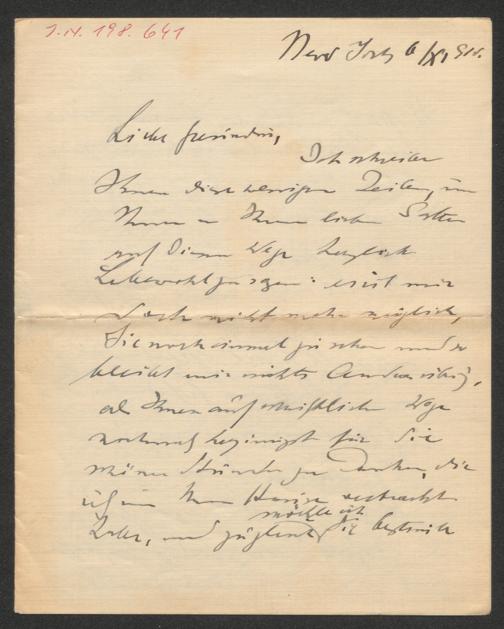 I.N. 198.641
New York 6/XI 910.
Liebe Freundin,
Ich schreibe
Ihnen diese wenigen Zeilen, um
Ihnen u Ihrem lieben Gatten
auf diesem Wege herzlich
Lebewohl zu sagen: es ist mir
doch nicht mehr möglich,
Sie noch einmal zu sehen und so
bleibt mir nichts Anderes übrig,
als Ihnen auf schriftlichem Wege
nochmals herzinnigst für die
schönen Stunden zu danken, die
ich in Ihrem Hause verbracht
habe, und zugleich möchte ich Sie